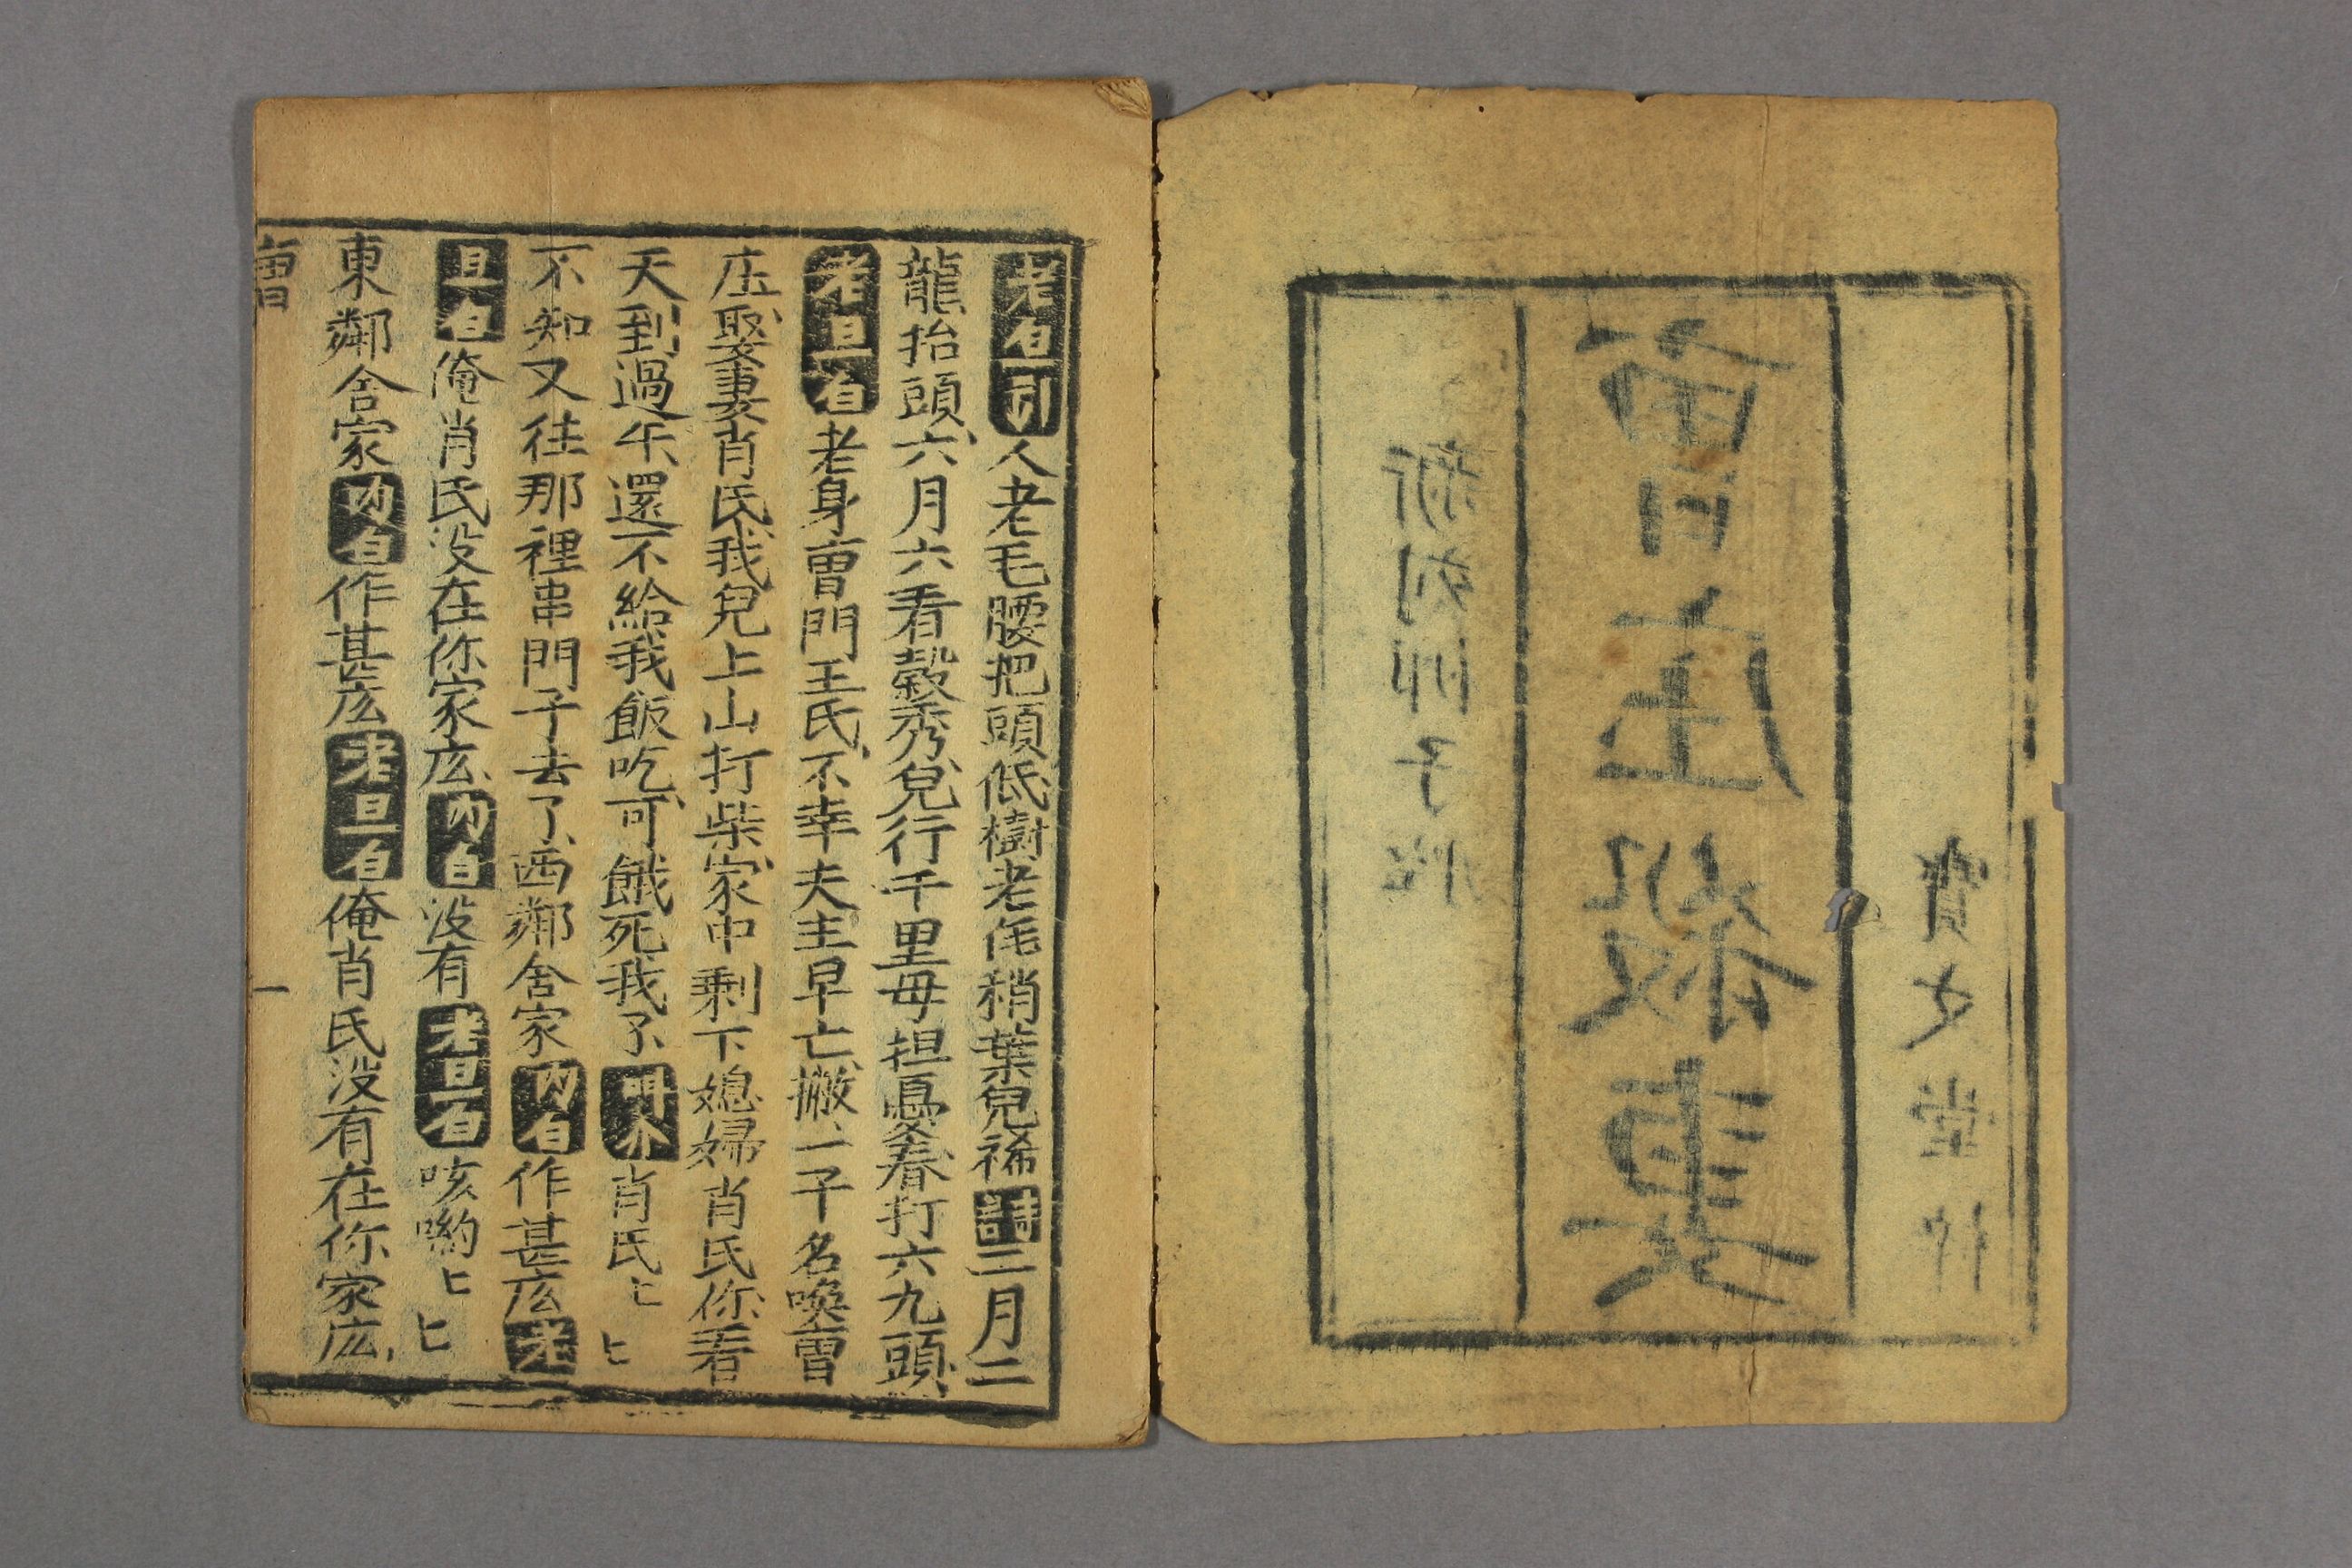 寳文堂梓
曺庄殺妻
新刻
老旦引人老毛腰把頭低樹老焦稍葉兒稀詩二月二
龍抬頭六月六看穀秀兒行千里母担憂春打六九頭
老旦白老身曺門王氏不幸夫主早亡撇一子名喚曺
庄娶妻肖氏我兒上山打柴家中剩下媳婦肖氏你看
天到過午還不給我飯吃可餓死我了開介肖氏匕匕
不知又往那裡串門子去了西鄰舍家內白作甚庅老
旦白俺肖氏没在你家庅內白没有老旦白咳喲匕匕
東鄰舍家內白作甚庅老旦白俺肖氏没有在你家庅
曺
一